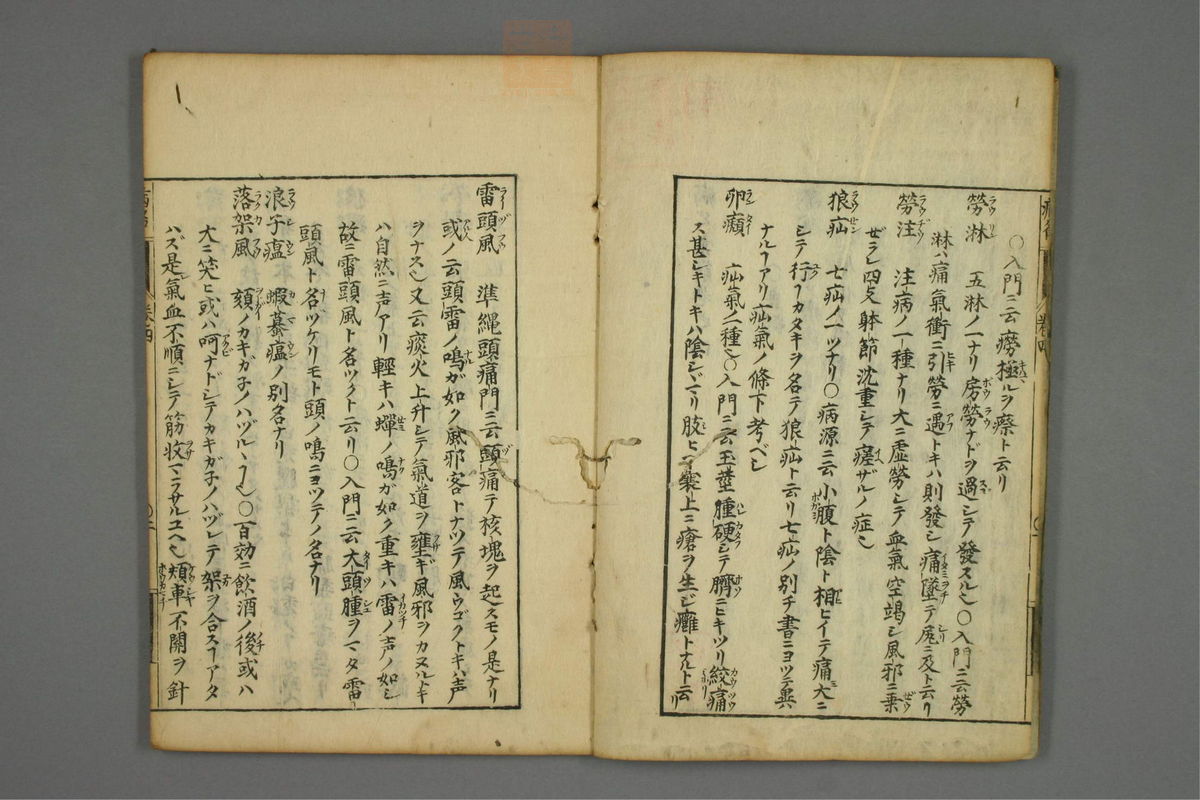 〇入門ニ云癆極ルヲ瘵ト云リ
勞淋　五淋ノ一ナリ房勞ナドヲ過シテ發スル也〇入門ニ云勞
淋ハ痛氣衝ニ引勞ニ遇トキハ則發シ痛墜テ尾ニ及ト云リ
勞注　注病ノ一種ナリ大ニ虚勞シテ血氣空竭シ風邪ニ乗
ゼラレ四支躰節沈重シテ瘥ザルノ症也
狼疝　七疝ノ一ツナリ〇病源ニ云小腹ト陰ト相ヒイテ痛大ニ
シテ行カタキヲ名テ狼疝ト云リ七疝ノ別チ書ニヨツテ異
ナルアリ疝氣ノ條下考ベシ
卵癩　疝氣ノ一種也〇入門ニ云玉莖腫硬シテ臍ニヒキツリ絞痛
ス甚シキトキハ陰シヾマリ肢ヒヘ囊上ニ瘡ヲ生ジ癰トナルト云リ
雷頭風　準繩頭痛門ニ云頭痛テ核塊ヲ起スモノ是ナリ
或ノ云頭雷ノ鳴ガ如ク風邪客トナツテ風ウゴクトキハ声
ヲナス也又云痰火上升シテ氣道ヲ壅ギ風邪ヲカヌルトキ
ハ自然ニ声アリ輕キハ蟬ノ鳴ガ如ク重キハ雷ノ声ノ如シ
故ニ雷頭風ト名ツクト云リ〇入門ニ云大頭腫ヲマタ雷
頭風ト名ヅケリモト頭ノ鳴ニヨツテノ名ナリ
浪子瘟　蝦蟇瘟ノ別名ナリ
落架風　頦ノカキガ子ノハヅルヽ也〇百効ニ飲酒ノ後或ハ
大ニ笑ヒ或ハ呵ナドシテカキガ子ノハヅレテ架ヲ合スアタ
ハズ是氣血不順ニシテ筋收マラサルユヘ也頰車不開ヲ針